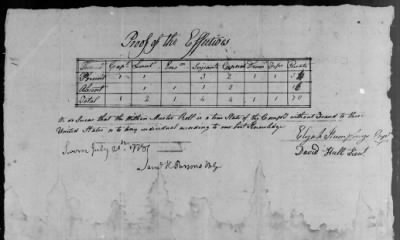 Proof of the Effectives
Capt Lieut Ens Serjeants Corporal Drum Fife Privates
Present 1 1 3 2 1 1
Absent 1 1 1
Total 1 2 1 4 1 1
We do Swear that the within Muster Roll is a true State of the Company without Fraud to these
United States or to any individual according to our best Knowledge
Elijah Humphreys Capt
David Hull Lieut
Sworn July 20th
Saml H Parsons